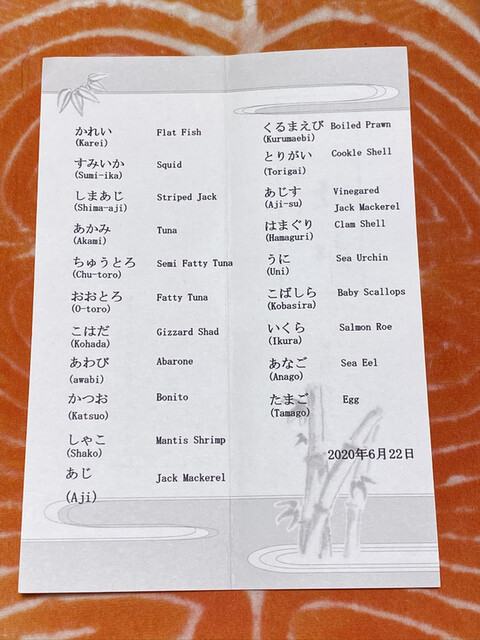 かれい Flat Fish
(Karei)
すみいか Squid
(Sumi-ika)
しまあじ Striped Jack
(Shima-aji)
あかみ Tuna
(Akami)
ちゅうとろ Semi Fatty Tuna
(Chu-toro)
おおとろ Fatty Tuna
(O-toro)
こはだ Gizzard Shad
(Kohada)
あわび Abarone
(awabi)
かつお Bonito
(Katsuo)
しゃこ Mantis Shrimp
(Shako)
あじ Jack Mackerel
(Aji)
くるまえび Boiled Prawn
(Kurumaebi)
とりがい Cookle Shell
(Torigai)
あじす Vinegared
(Aji-su) Jack Mackerel
はまぐり Clam Shell
(Hamaguri)
うに Sea Urchin
(Uni)
こばしら Baby Scallops
(Kobasira)
いくら Salmon Roe
(Ikura)
あなご Sea Eel
(Anago)
たまご Egg
(Tamago)
2020年6月22日